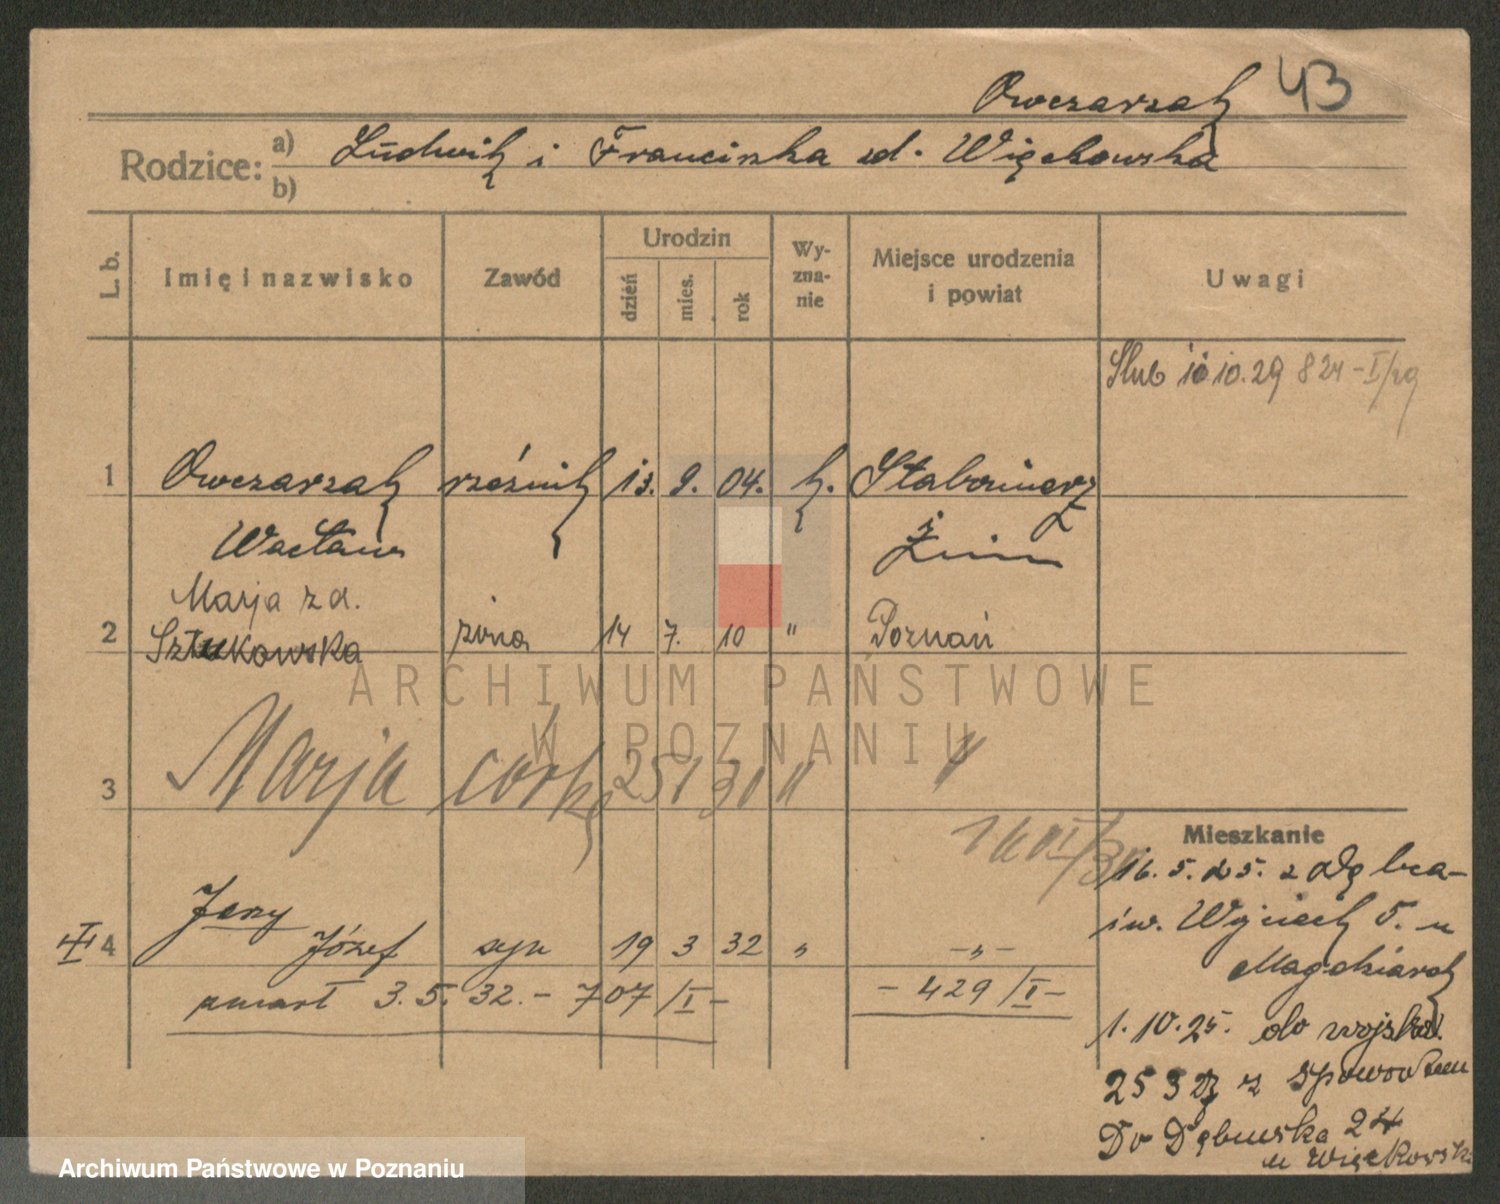 Owczarzak 43
Rodzice: a) b) Ludwik i Franciszka zd. Więckowska
L. b.
Imię i nazwisko
Zawód
Urodzin
dzień
mies.
rok
Wy-
zna-
nie
Miejsce urodzenia
i powiat
Uwagi
Ślub 10.29 824-I/29
1 Owczarzak rzeźnik 13. 9. 04. k.
Wacław Żnin
Marja zd.
2 Sztukowska żona 14 7. 10 " Poznań
ARCHIWUM PAŃSTWOWE
W POZNANIU
3 Marja córka 25 1 30 " "
Mieszkanie
16. 5. 25. z
św. Wojciech 5. u
Jerzy
4 Józef syn 19 3 32 " -"-
umarł 3. 5. 32. - 707/I- - 429/I-
1. 10. 25. do wojska.
253 z
Do Dębińska 24
u Więckowski
Archiwum Państwowe w Poznaniu